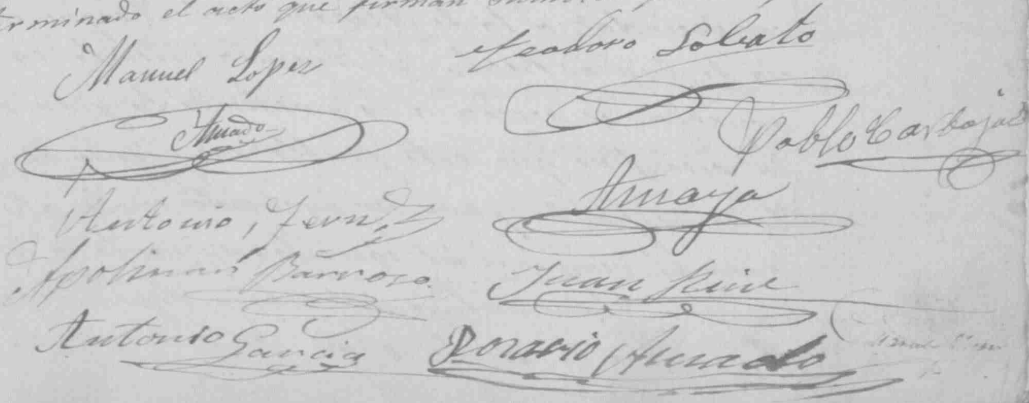 terminado el acto que firman
Manuel Lopez
Teodoro Lobato
Amado
Pablo Carbajal
Amaya
Antonio, Fernz
Apolinar Barroso
Juan
Antonio Garcia
Amado